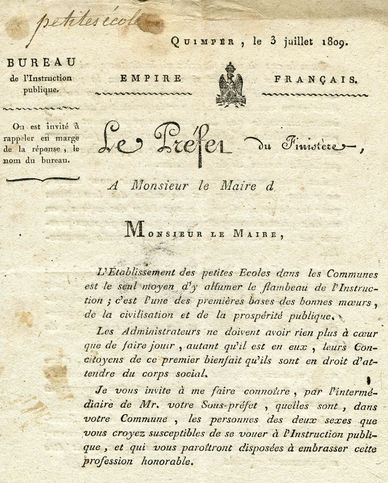 petites écoles
Quimper, le 3 juillet 1809.
BUREAU
de l'Instruction
publique.
EMPIRE FRANÇAIS.
On est invité à
rappeler en marge
de la réponse, le
nom du bureau.
Le Préfet du Finistère,
A Monsieur le Maire d
Monsieur le Maire,
L'Etablissement des petites Ecoles dans les Communes
est le seul moyen d'y allumer le flambeau de l'Instruc-
tion ; c'est l'une des premières bases des bonnes mœurs,
de la civilisation et de la prospérité publique.
Les Administrateurs ne doivent avoir rien plus à cœur
que de faire jouir, autant qu'il est en eux, leurs Con-
citoyens de ce premier bienfait qu'ils sont en droit d'at-
tendre du corps social.
Je vous invite à me faire connoître, par l'intermé-
diaire de Mr. votre Sous-préfet, quelles sont, dans
votre Commune, les personnes des deux sexes que
vous croyez susceptibles de se vouer à l'Instruction publi-
que, et qui vous paroîtront disposées à embrasser cette
profession honorable.